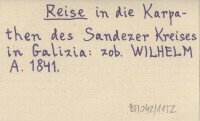 Reise in die Karpa-
then des Sandezer Kreises
in Galizia: zob. WILHELM
A. 1841.